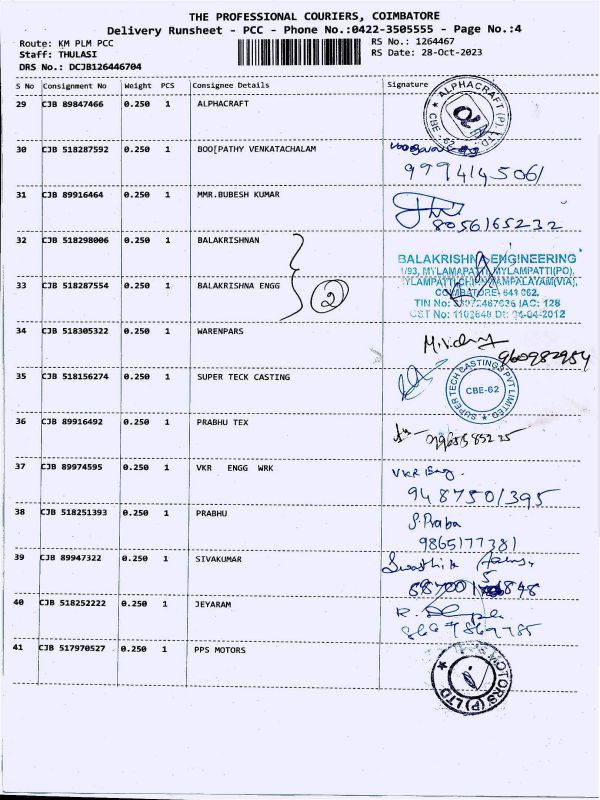 THE PROFESSIONAL COURIERS, COIMBATORE
Delivery Runsheet - PCC - Phone No.:0422-3505555 - Page No.:4
Route: KM PLM PCC RS No.: 1264467
Staff: THULASI RS Date: 28-Oct-2023
DRS No.: DCJB126446704
S No Consignment No Weight PCS Consignee Details Signature
29 CJB 89847466 0.250 1 ALPHACRAFT
ALPHACRAFT (P) LTD. CBE - 62
30 CJB 518287592 0.250 1 BOO[PATHY VENKATACHALAM
9994145061
31 CJB 89916464 0.250 1 MMR.BUBESH KUMAR
8056165232
32 CJB 518298006 0.250 1 BALAKRISHNAN
BALAKRISHNA ENGINEERING
1/93, MYLAMAPATTI, MYLAMPATTI(PO),
33 CJB 518287554 0.250 1 BALAKRISHNA ENGG
2
COIMBATORE- 641 062.
IAC: 128
CST No: 1102648 Dt: 04-04-2012
34 CJB 518305322 0.250 1 WARENPARS
960982954
35 CJB 518156274 0.250 1 SUPER TECK CASTING
SUPER TECH CASTINGS PVT LIMITED
CBE-62
36 CJB 89916492 0.250 1 PRABHU TEX
37 CJB 89974595 0.250 1 VKR ENGG WRK
VKR Eng.
9487501395
38 CJB 518251393 0.250 1 PRABHU
S. Praba
9865177381
39 CJB 89947322 0.250 1 SIVAKUMAR
Swasthik
40 CJB 518252222 0.250 1 JEYARAM
41 CJB 517970527 0.250 1 PPS MOTORS
PPS MOTORS (P) LTD